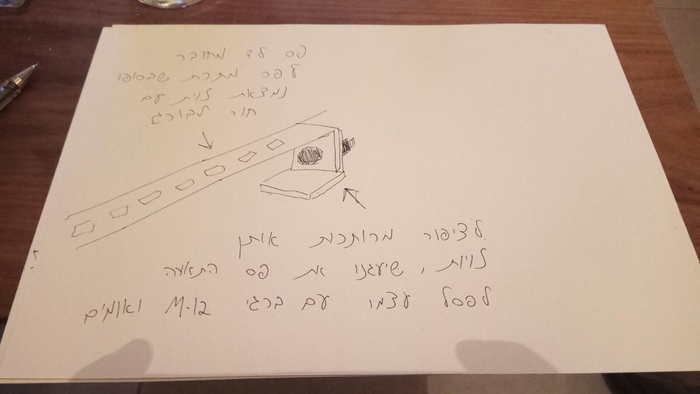 פס לד מחובר
לפס מתכת שבסופו
נמצאת זוית עם
חור לבורג
לציפור מרותכות אותן
זויות, שיעגנו את פס התאורה
לפסל עצמו עם ברגי M-12 ואומים